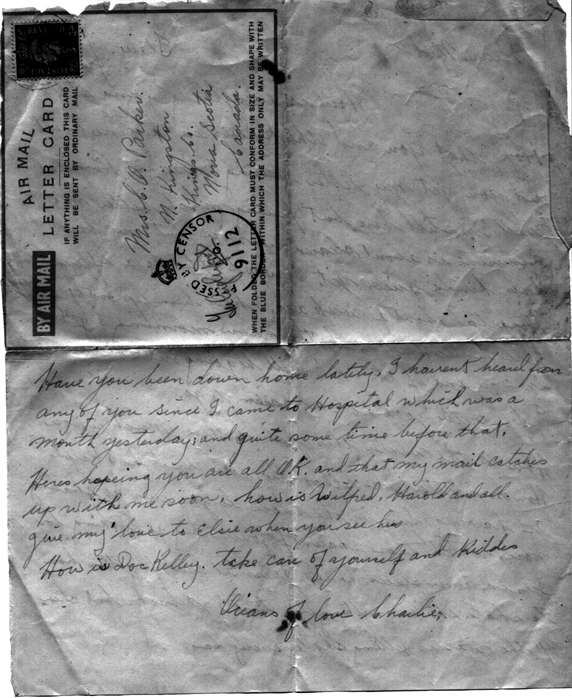 AIR MAIL
LETTER CARD
IF ANYTHING IS ENCLOSED THIS CARD
WILL BE SENT BY ORDINARY MAIL
BY AIR MAIL
Mrs. C. D. Parker.
N. Kingston
Kings. Co.
Nova Scotia
Canada.
PASSED BY CENSOR
NO.
9112
WHEN FOLDED THE LETTER CARD MUST CONFORM IN SIZE AND SHAPE WITH
THE BLUE BORDER WITHIN WHICH THE ADDRESS ONLY MAY BE WRITTEN
Have you been down home lately. I havent heard from
any of you since I came to Hospital which was a
month yesterday, and quite some time before that.
Heres hopeing you are all O.K. and that my mail catches
up with me soon. how is Wilfred, Harold and all.
give my love to Elsie when you see her
How is Doc Kelley. take care of yourself and Kiddes
of love Charlie,